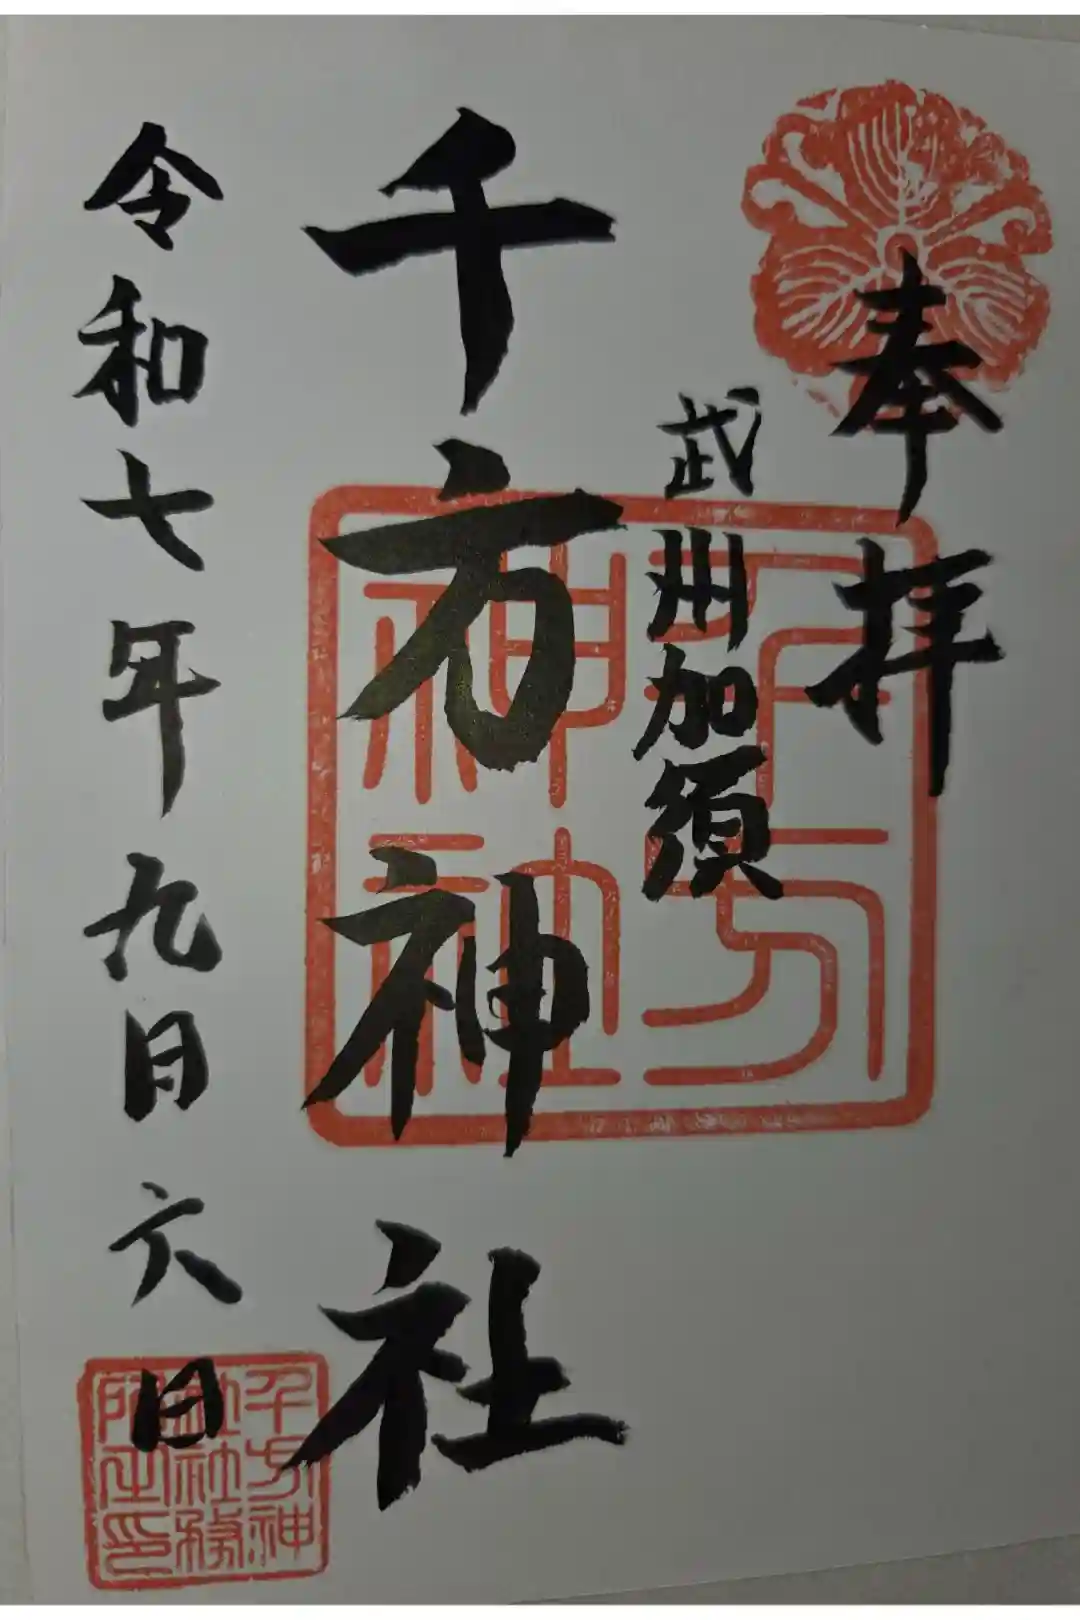 奉拝
武州加須
千方神社
令和七年九月六日
千方神社
千方神社社務所之印